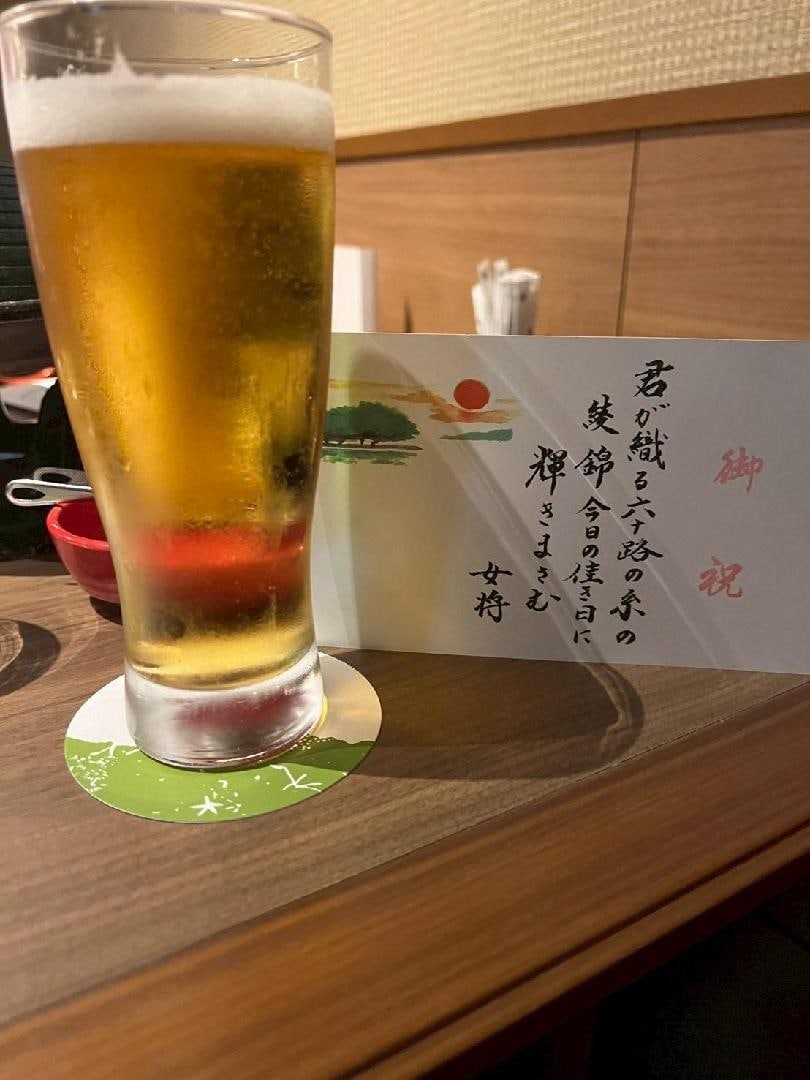 御祝
君が織る六十路の糸の
綾錦今日の佳き日に
輝きまさむ
女将